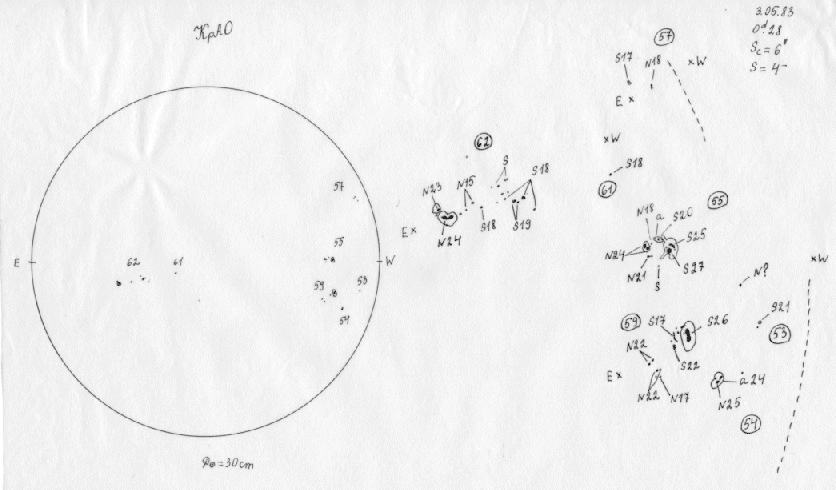 КрАО
3.05.83
S = 4
57
S17
N18
×W
E ×
×W
S18
61
62
S
S18
N15
N23
E ×
N24
S18
S19
57
55
E
62
61
W
59
53
54
N18
a
S20
55
S25
N24
N21
S
S27
×W
59
S17
S26
S21
53
N22
S22
E ×
a24
N22
N17
N25
54
= 30cm